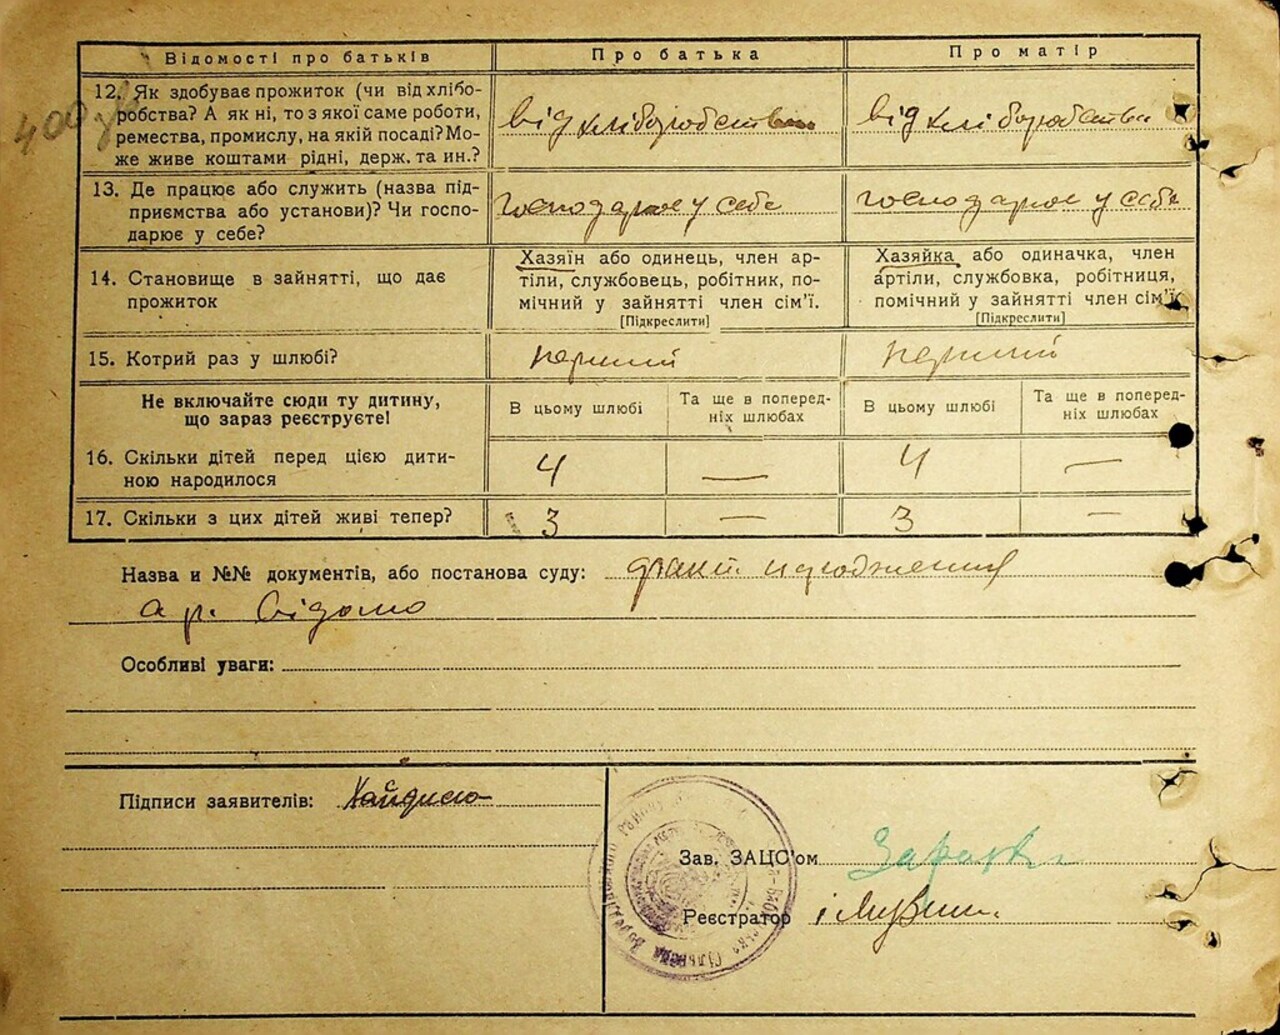 Відомості про батьків
Про батька
Про матір
12. Як здобуває прожиток (чи від хлібо-
робства? А як ні, то з якої саме роботи,
ремества, промислу, на якій посаді? Мо-
же живе коштами рідні, держ. та ин.?
від хліборобства
від хліборобства
400
13. Де працює або служить (назва під-
приємства або установи)? Чи госпо-
дарює у себе?
господарює у себе
господарює у себе
14. Становище в зайнятті, що дає
прожиток
Хазяїн або одинець, член ар-
тіли, службовець, робітник, по-
мічний у зайнятті член сім'ї.
[Підкреслити]
Хазяйка або одиначка, член
артіли, службовка, робітниця,
помічний у зайнятті член сім'ї
[Підкреслити]
15. Котрий раз у шлюбі?
перший
перший
Не включайте сюди ту дитину,
що зараз реєструєте!
В цьому шлюбі
Та ще в поперед-
ніх шлюбах
В цьому шлюбі
Та ще в поперед-
ніх шлюбах
16. Скільки дітей перед цією дити-
ною народилося
4
—
4
—
17. Скільки з цих дітей живі тепер?
3
—
3
—
Назва и №№ документів, або постанова суду: факт народження
с р. Свідомо
Особливі уваги:
Підписи заявителів:
Зав. ЗАЦС'ом
Реєстратор